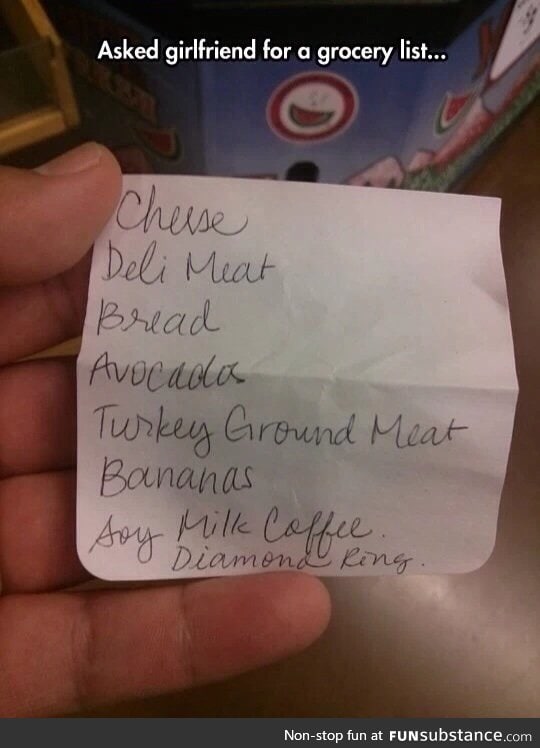 Asked girlfriend for a grocery list...
Cheese
Deli Meat
Bread
Avocados
Turkey Ground Meat
Bananas
Soy Milk Coffee.
Diamond Ring.
Non-stop fun at FUNsubstance.com